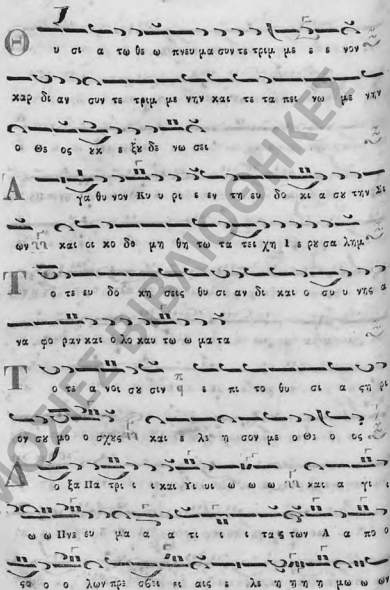 Θ υ σι α τω θε ω πνευ μα συν τε τριμ με ε ε νον
καρ δι αν συν τε τριμ με νην και τε τα πει νω με νην
ο Θε ος ȣκ ε ξȣ δε νω σει
Α γα θυ νον Κυ υ ρι ε εν τη ευ δο κι α σȣ την Σι
ων και οι κο δο μη θη τω τα τει χη Ι ε ρȣ σα λημ
Τ ο τε ευ δο κη σεις θυ σι αν δι και ο συ υ νης α
να φο ραν και ο λο καυ τω ω μα τα
Τ ο τε α νοι σȣ σιν ε πι το θυ σι α ςη ρι
ον σȣ μο ο σχȣς και ε λε η σον με ο Θε ο ος
Δ ο ξα Πα τρι ι ι και Υι υι ω ω ω και α γι ι
ω ω Πνε ευ μα α α τι ι ι τας των Α α πο ο
ςο ο ο λων πρε σβει ει αις ε λε η η η η μω ω ων
ΒΙΒΛΙΟΘΗΚΕΣ